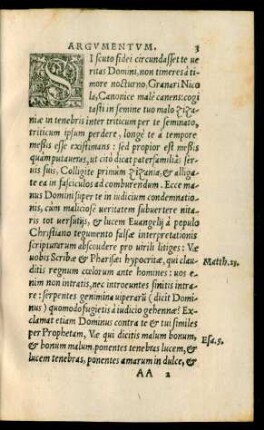 ARGVMENTVM. 3
SI scuto fidei circundasset te ue
ritas Domini, non timeres à ti
more nocturno. Granari Nico
la, Canonice malè canens: cogi
tasti in semine tuo malo Zizā
niæ in tenebris inter triticum per te seminato,
triticum ipsum perdere, longè te à tempore
messis esse existimans: sed propior est messis
quam putaueras, ut citò dicat paterfamiliâs ser
uis suis, Colligite primum Zizania, & alliga
te ea in fasciculos ad comburendum. Ecce ma
nus Domini super te in iudicium condemnatio
nis, cum malitiosè ueritatem subuertere nita
ris tot uersutijs, & lucem Euangelij à populo
Christiano tegumento falsæ interpretationis
scripturarum abscondere pro uirili litiges: Væ
uobis Scribæ & Pharisæi hypocritæ, qui clau
ditis regnum cœlorum ante homines: uos e
nim non intratis, nec introeuntes sinitis intra
re: serpentes genimina uiperarū (dicit Domi
nus) quomodo fugietis à iudicio gehennæ? Ex
clamat etiam Dominus contra te & tui similes
per Prophetam, Væ qui dicitis malum bonum,
& bonum malum: ponentes tenebras lucem, &
lucem tenebras, ponentes amarum in dulce, &
AA 2
Matth. 23.
Esa. 5.